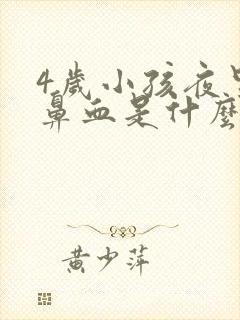 4歲小孩夜里
鼻血是什麼
黃少萍